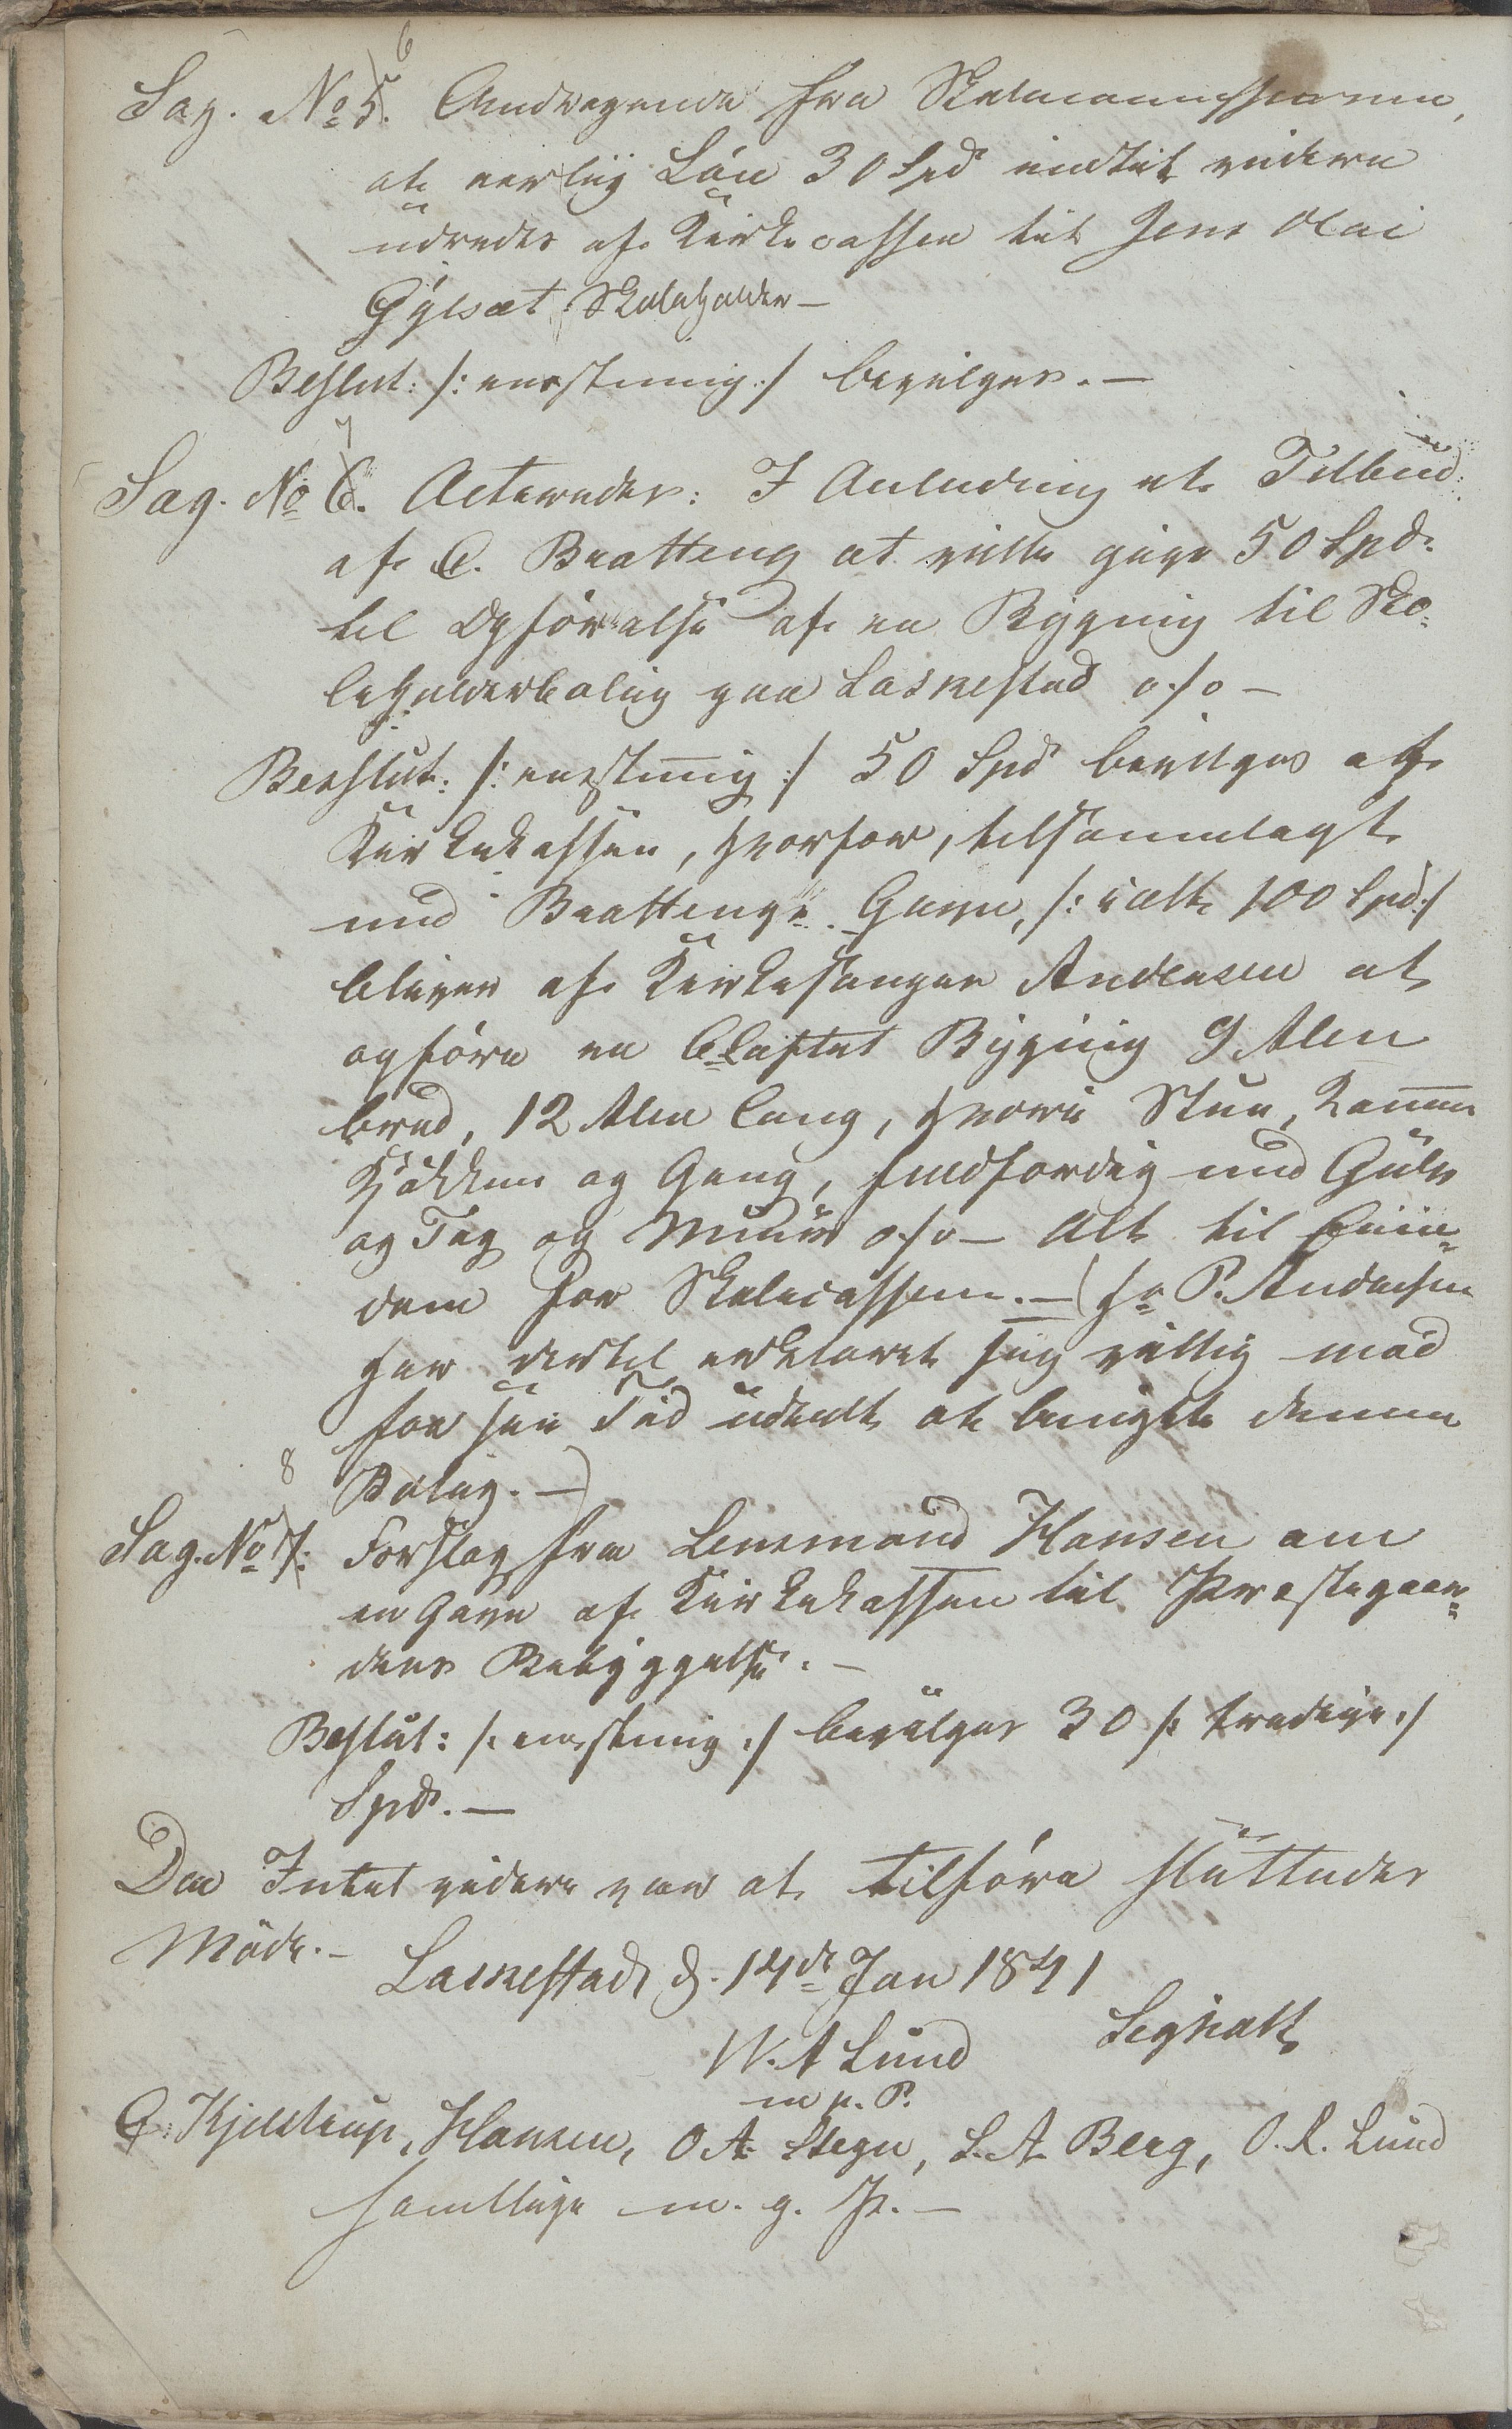 6
Sag. No 5. Andragende fra Skolecommissionen,
at aarlig Løn 30 Spd indtil videre
udredes af Kirkecassen til Jens Olai
Gylset Skoleholder –
Beslut: /: eenstemig :/ bevilges. –
7
Sag. No 6. Acteredes: I Anledning et Tilbud
af C. Bratteng at ville give 50 Spd.
til Opførelse af en Bygning til Sko-
leholderbolig paa Laskestad o/o –
Beeslut: /: eenstemig :/ 50 Spd bevilges af
Kirkekassen, hvorfor, tilsammelagt
med Brattengs Gave, /: i alt 100 Spd :/
bliver af Kirkesanger Andersen at
opføre en Bygning 9 Alen
bred, 12 Alen lang, hvori Stue, Kammer
Kjøkken og Gang, fuldfærdig med Gulv
og Tag og Muur o/o – Alt til Eien-
dom for Skolecassen. – (Hr P. Andersen
har dertil erklæret sig villig mod
for sin Tid udeelt at benytte denne
Bolig. –)
8
Sag. No 7: Forslag fra Lensmand Hansen om
en Gave af Kirkekassen til Præstegaar-
dens Bebyggelse. –
Beslut: /: eenstemig :/ bevilges 30 /: tredive :/
Spd. –
Da Intet videre var at tilføre sluttedes
Møde. –
Laskestad d. 14de Jan 1841
W. A Lund
m p. P.
C. Kjelstrup, Hansen, O A. Stegn, L. A Berg, O. L. Lund
samtlige m. p. P. –